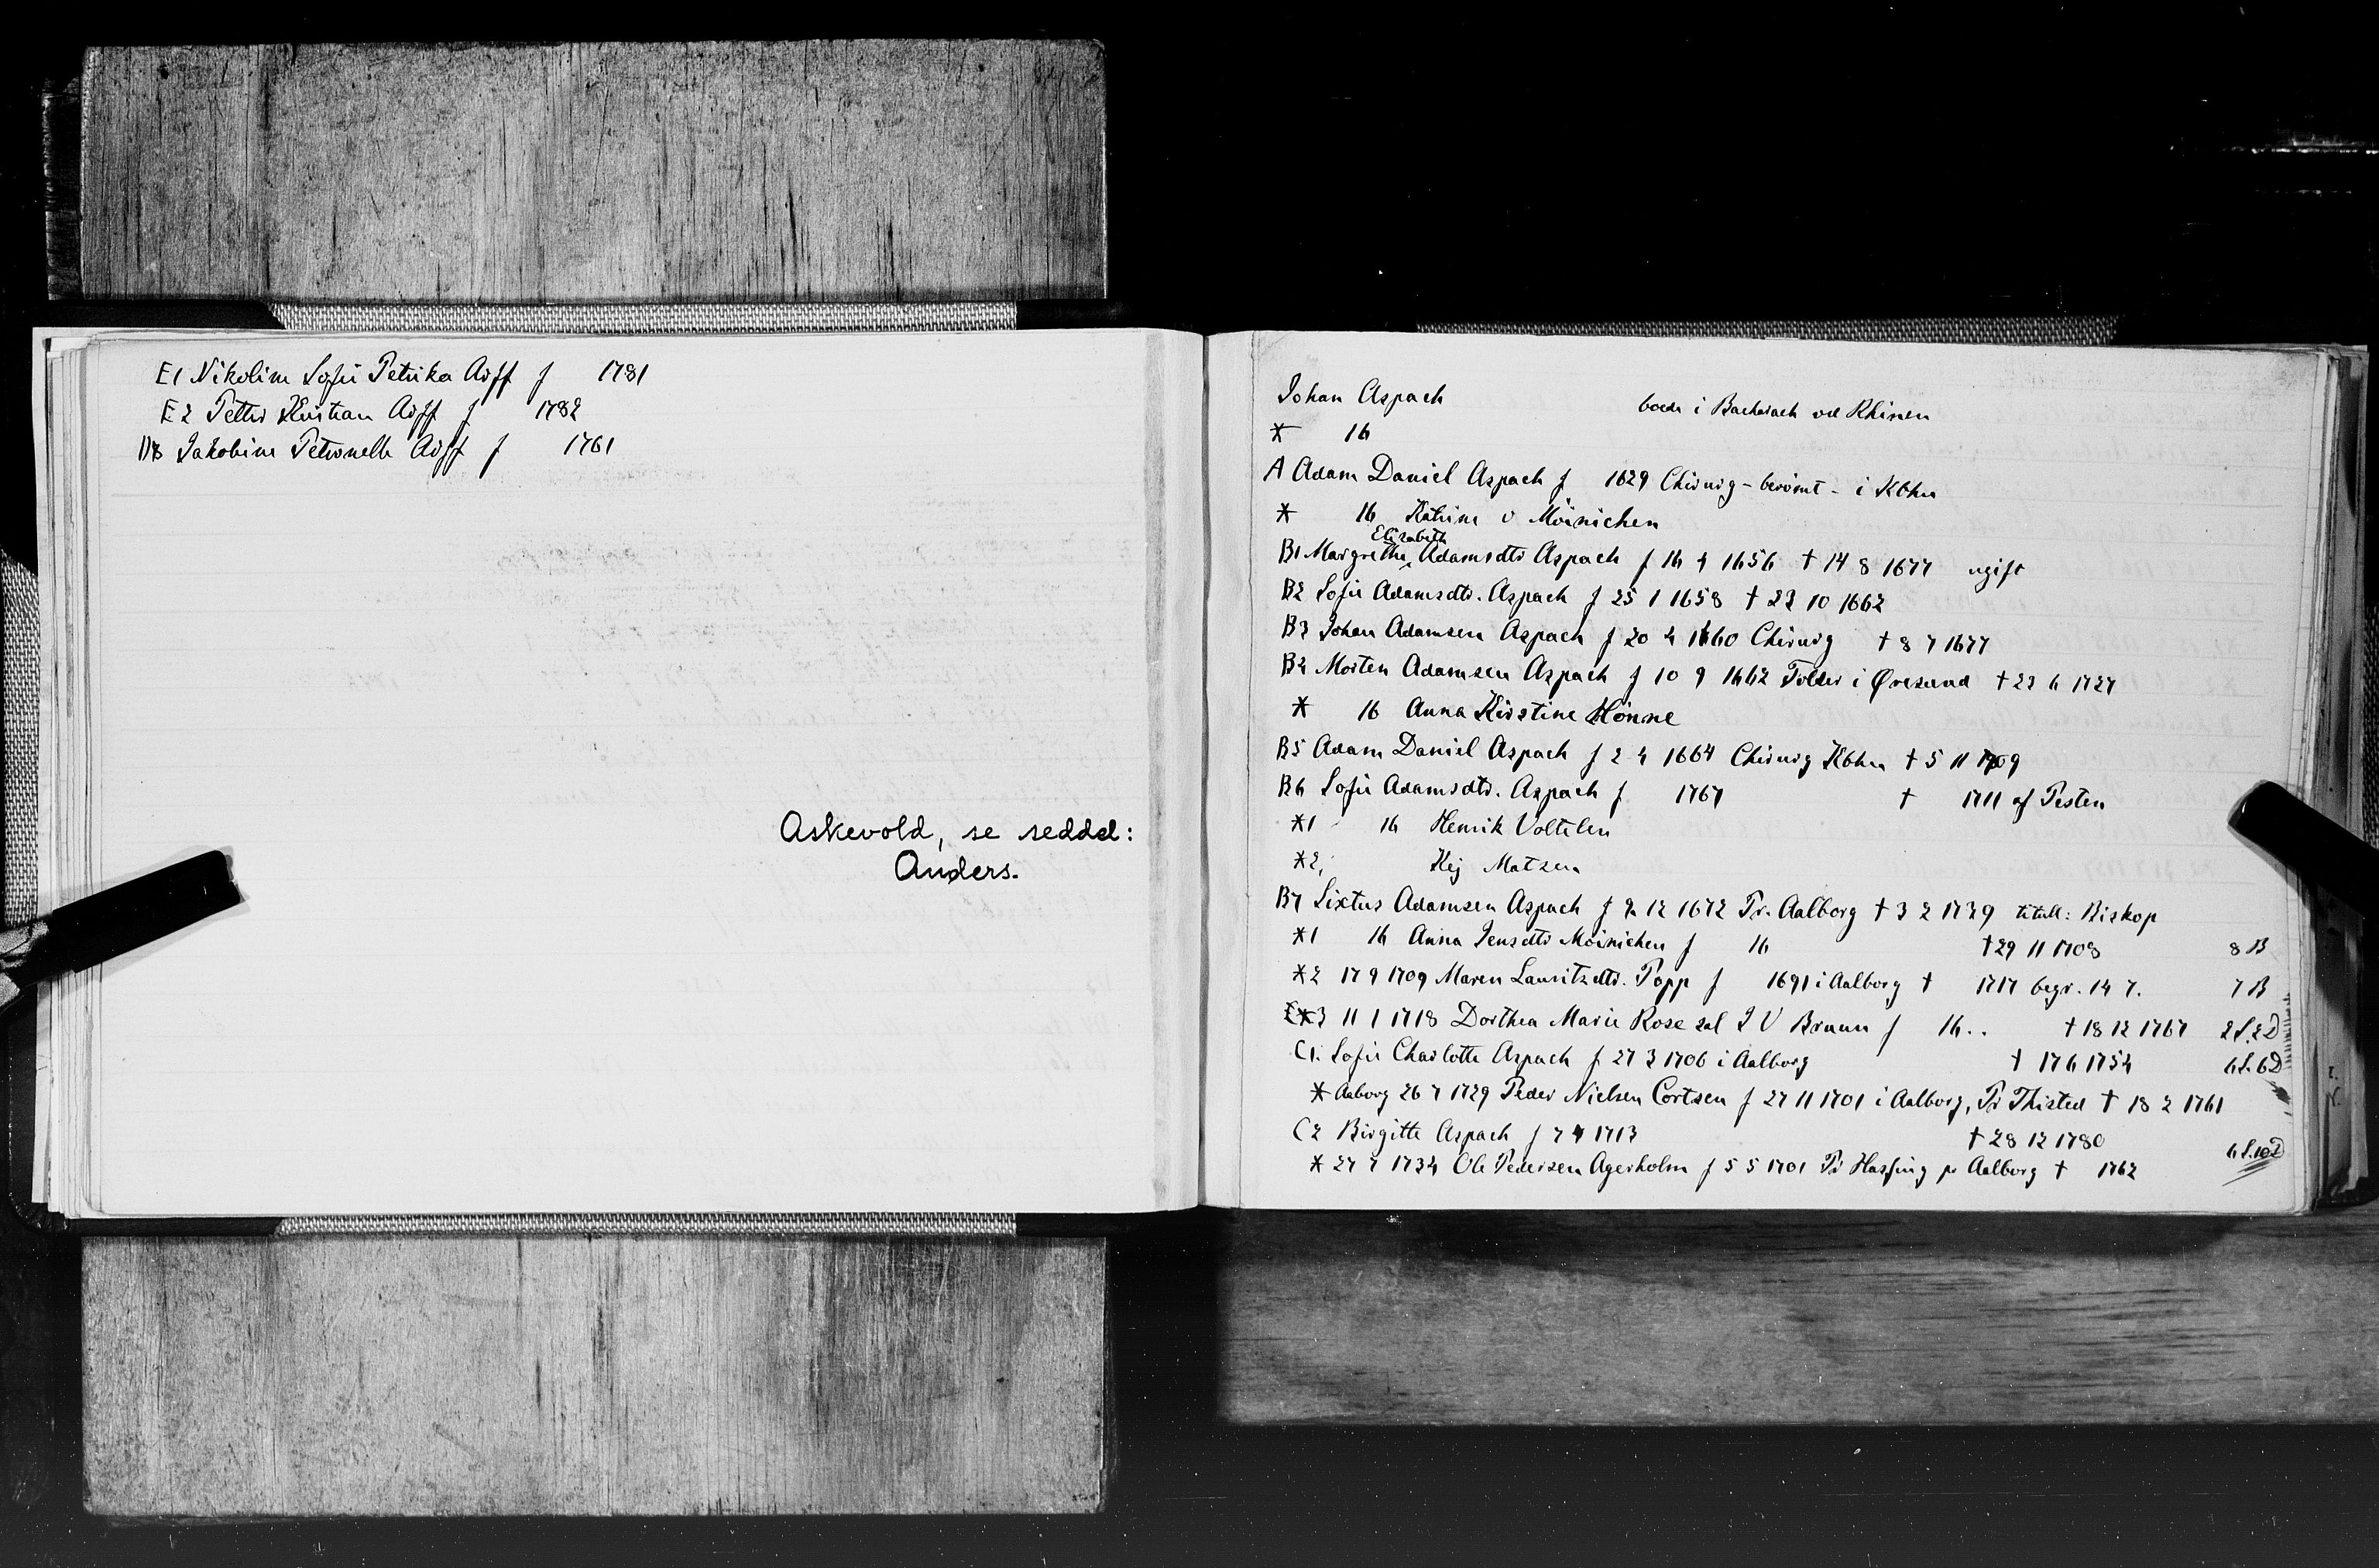 E1 Nikoline Sofie Petrika Arff f 1781
E2 Petter Kristian Arff f 1782
D8 Jakobine Petronelle Arff f 1761
Askevold, se seddel:
Anders.
Johan Aspach boede i Bacharach ved Rhinen
* 16
A Adam Daniel Aspach f 1629 Chirurg - berömt - i Kbhn
* 16 Katrine v Möinichen
Elizabeth
B1 Margrethe Adamsdtr Aspach f 16 4 1656 † 14 8 1677 ugift
B2 Sofie Adamsdtr. Aspach f 25 1 1658 † 23 10 1662
B3 Johan Adamsen Aspach f 20 4 1660 Chirurg † 8 7 1677
B4 Morten Adamsen Aspach f 10 9 1662 Tolder i Øresund † 23 6 1727
* 16 Anna Kirstine Hönne
B5 Adam Daniel Aspach f 2 4 1664 Chirurg Kbhn † 5 11 1709
B6 Sofie Adamsdtr. Aspach f 1767 † 1711 af Pesten
*1 16 Henrik Voltelen
*2, Kej Matzen
B7 Sixtus Adamsen Aspach f 9 12 1672 Pr. Aalborg † 3 2 1739 titul: Biskop
*1 16 Anna Jensdtr Möinichen f 16 † 29 11 1708 8 B
*2 17 9 1709 Maren Lauritzdtr. Popp f 1691 i Aalborg † 1717 begr. 14 7. 7 B
*3 11 1 1718 Dorthea Marie Rose sal J V Bruun f 16.. † 18 12 1767 2 S. 2 D
C1. Sofie Charlotte Aspach f 27 3 1706 i Aalborg † 17 6 1754 6 S. 6 D
* Aaborg 26 7 1729 Peder Nielsen Cortsen f 27 11 1701 i Aalborg, Pr Thisted † 18 2 1761
C2 Birgitte Aspach f 7 4 1713 † 28 12 1780 6 S. 10 D
* 27 7 1734 Ole Pedersen Agerholm f 5 5 1701 Pr Hassing pr Aalborg † 1762